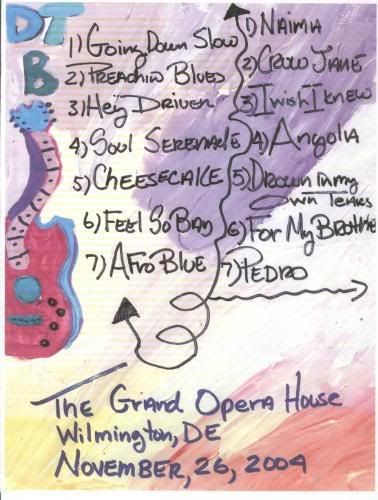 DT
B
1) Going Down Slow
2) Preachin Blues
3) Hey Driver
4) Soul Serenade
5) Cheesecake
6) Feel So Bad
7) Afro Blue
1) Naima
2) Crow Jane
3) I wish I knew
4) Angola
5) Drown in my
own Tears
6) For My Brother
7) Pedro
The Grand Opera House
Wilmington, DE
November, 26, 2004